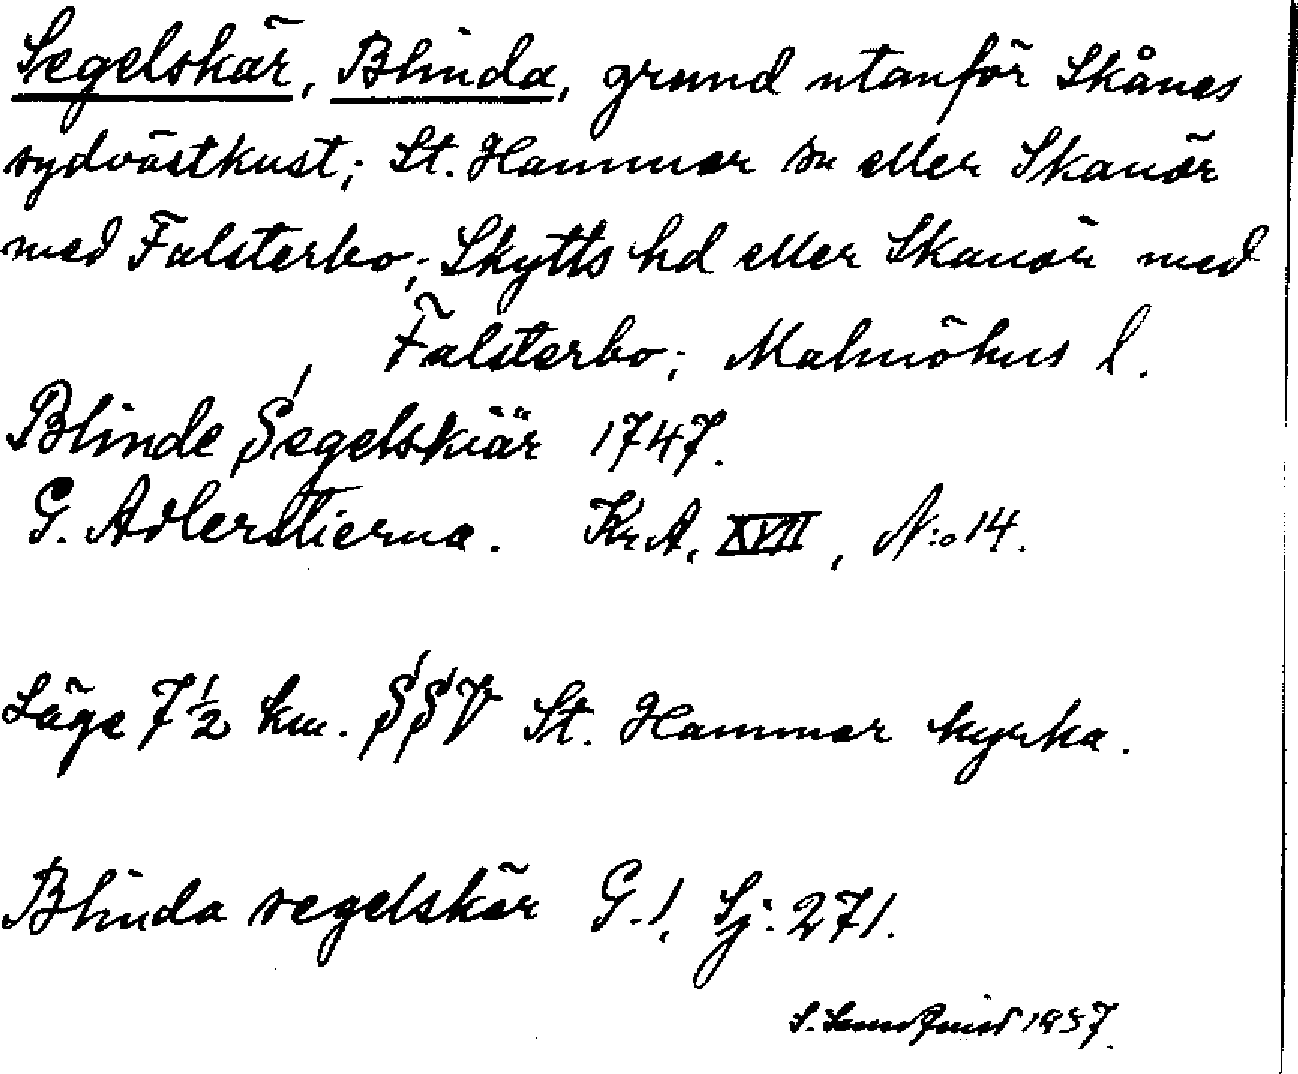 Segelskär, Blinda, grund utanför Skånes
sydvästkust; St. Hammar sn eller Skanör
med Falsterbo; Skytts hd eller Skanör med
Falsterbo; Malmöhus l.
Blinde Segelskiär 1747.
G. Adlerstierna. Kr.A. XVII, N:o 14.
Läge 7½ km. SSV St. Hammar kyrka.
Blinda segelskär G.!, Sj: 271.
S. 1957.